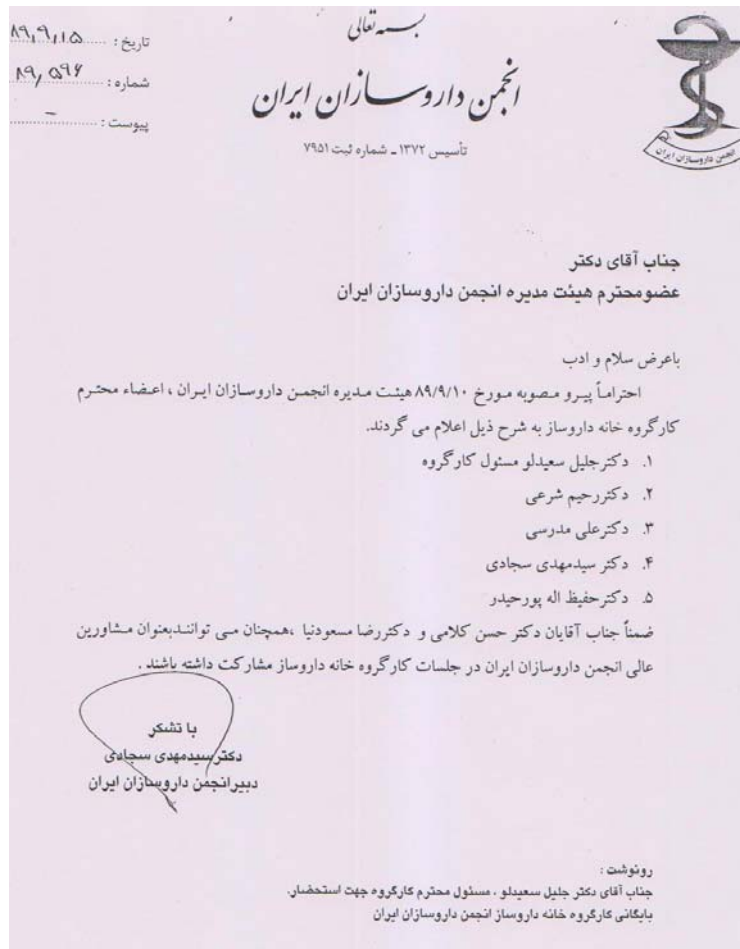 بسمه تعالی
انجمن داروسازان ایران
تأسیس ۱۳۷۲ ـ شماره ثبت ۷۹۵۱
تاریخ : ۸۹,۹,۱۵
شماره : ۸۹,۵۹۶
پیوست : –
انجمن داروسازان ایران
جناب آقای دکتر
عضومحترم هیئت مدیره انجمن داروسازان ایران
باعرض سلام و ادب
احتراماً پیرو مصوبه مورخ ۸۹/۹/۱۰ هیئت مدیره انجمن داروسازان ایران ، اعضاء محترم
کارگروه خانه داروساز به شرح ذیل اعلام می گردند.
۱. دکترجلیل سعیدلو مسئول کارگروه
۲. دکتررحیم شرعی
۳. دکترعلی مدرسی
۴. دکتر سیدمهدی سجادی
۵. دکترحفیظ اله پورحیدر
ضمناً جناب آقایان دکتر حسن کلامی و دکتررضا مسعودنیا ،همچنان می توانندبعنوان مشاورین
عالی انجمن داروسازان ایران در جلسات کارگروه خانه داروساز مشارکت داشته باشند .
با تشکر
دکترسیدمهدی سجادی
دبیرانجمن داروسازان ایران
رونوشت :
جناب آقای دکتر جلیل سعیدلو ، مسئول محترم کارگروه جهت استحضار.
بایگانی کارگروه خانه داروساز انجمن داروسازان ایران